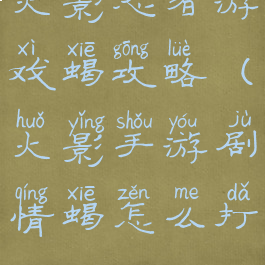 火影忍者游
xì xiē gōng lüè
戏蝎攻略(
huǒ yǐng shǒu yóu jù
火影手游剧
qíng xiē zěn me dǎ
情蝎怎么打